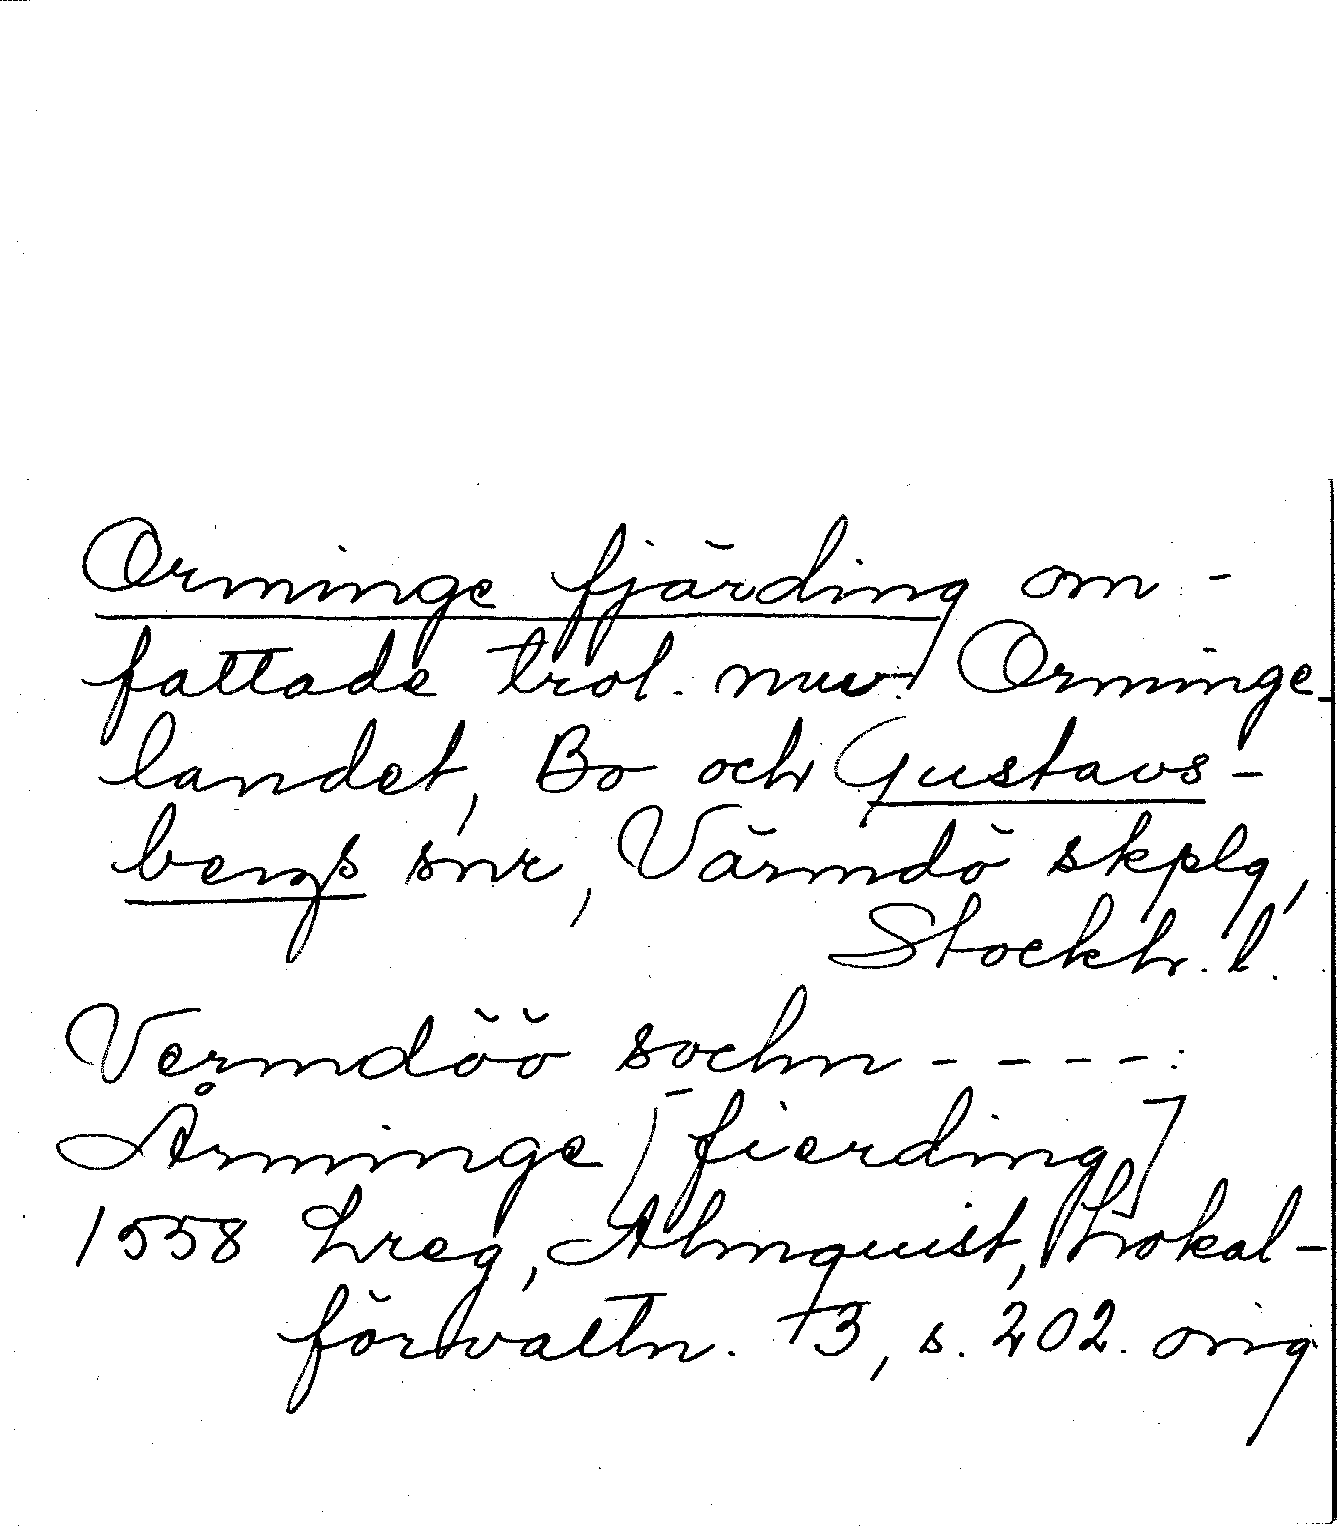 Orminge fjärding om-
fattade trol. nuv. Orminge-
landet, Bo och Gustavs-
bergs snr, Värmdö skplg,
Stockh. l.
Vermdöö sochn ----:
Årminge [fierding]
1558 Lreg, Almquist, Lokal-
förvaltn. +3, s. 202. orig